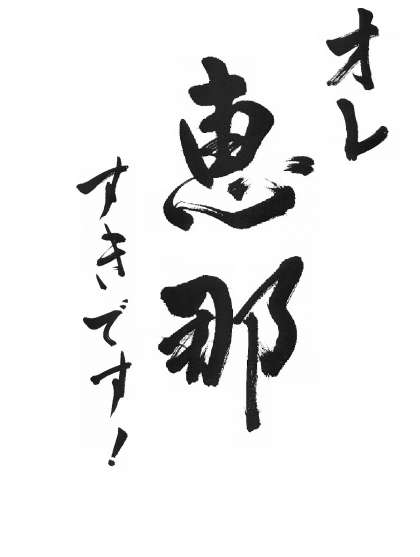 オレ
恵那
すきです!